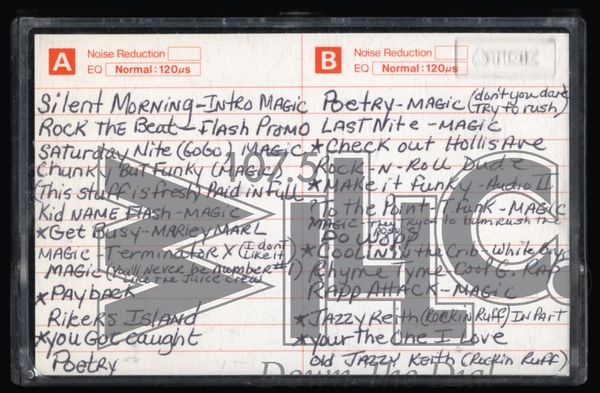 A Noise Reduction
EQ Normal:120µs
Silent Morning-Intro MAGIC
Rock The Beat-Flash Promo
Saturday Nite (GoGo) MAGIC
Chunky But Funky (MAGIC)
(This stuff is fresh) Paid in Full
Kid NAME Flash-MAGIC
*Get Busy-MARleY MARL
MAGIC-Terminator X (I don't Like it)
MAGIC (You'll Never be number #1)
Like The Juice crew
*Payback
Rikers Island
*You Got caught
Poetry
B Noise Reduction
EQ Normal:120µs
Poetry-MAGIC (don't you dare Try to rush)
LAST Nite-MAGIC
*Check out Hollis Ave
Rock-N-Roll Dude
*MAKE it funky-Audio II
To the Point-T.funk-MAGIC
MAGIC- Tryed to bum rush the
Do Wopp
*COOLN in the Crib-White Boys
Rhyme Tyme-Cool G. RAP
RAPP Attack-MAGIC
*JAZZY Keith (Rockin Ruff) IN Part
*your The One I Love
old JAZZY Keith (Rockin Ruff)
107.5
WBLS
Down The Dial